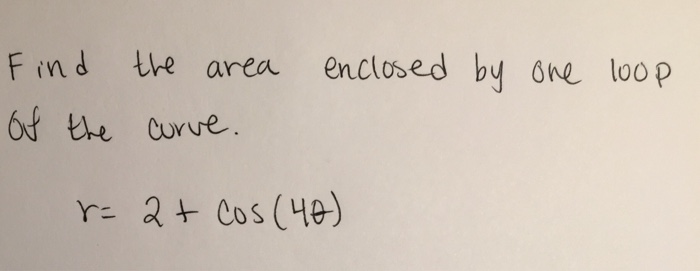 Find the area enclosed by one loop
of the curve.
r= 2 + cos(4θ)